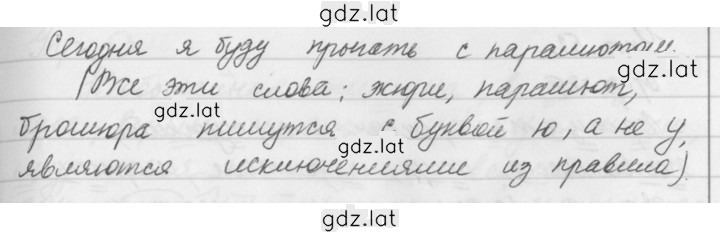 gdz.lat
Сегодня я буду прыгать с парашютом.
gdz.lat
(Все эти слова: жюри, парашют,
gdz.lat
брошюра пишутся с буквой ю, а не у,
gdz.lat
являются исключениями из правила).
gdz.lat